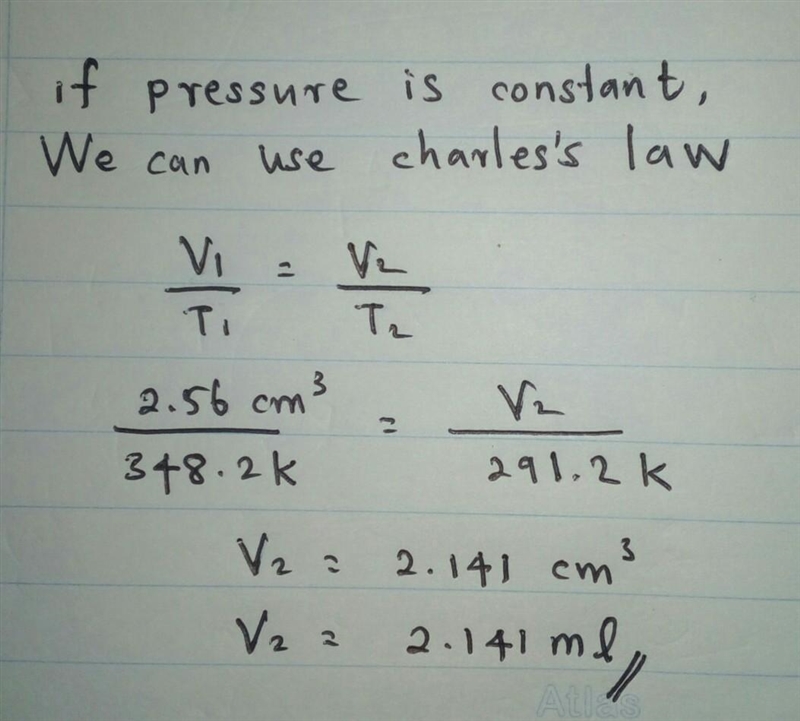 if pressure is constant,
We can use charles's law
V1 / T1 = V2 / T2
2.56 cm³ / 348.2 k = V2 / 291.2 k
V2 = 2.141 cm³
V2 = 2.141 ml //
Atlas